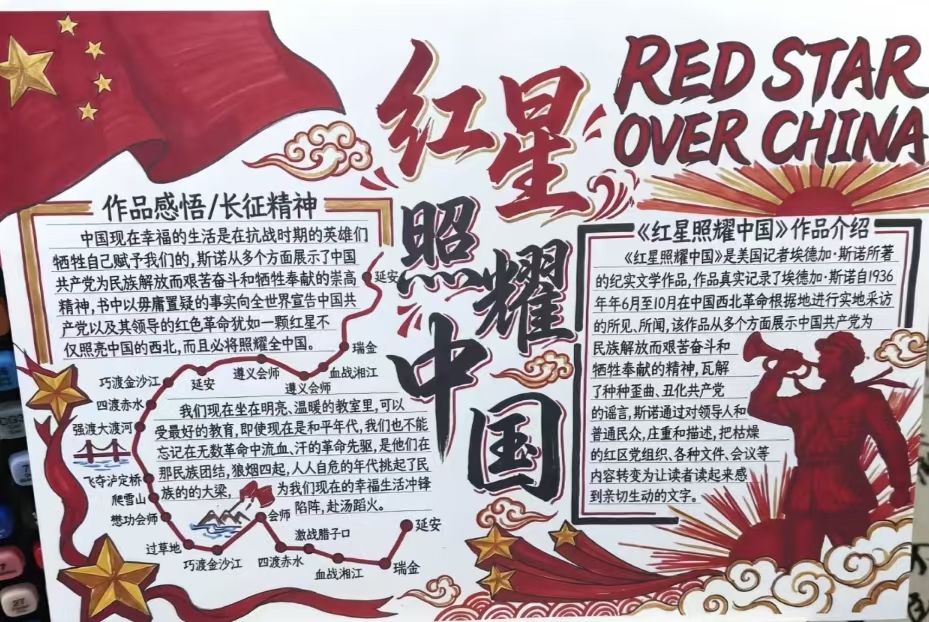 红星
照耀
中国
RED STAR
OVER CHINA
作品感悟/长征精神
中国现在幸福的生活是在抗战时期的英雄们
牺牲自己赋予我们的,斯诺从多个方面展示了中国
共产党为民族解放而艰苦奋斗和牺牲奉献的崇高
精神,书中以毋庸置疑的事实向全世界宣告中国共
产党以及其领导的红色革命犹如一颗红星不
仅照亮中国的西北,而且必将照耀全中国。
延安
瑞金
血战湘江
遵义会师
遵义会师
延安
巧渡金沙江
四渡赤水
强渡大渡河
飞夺泸定桥
爬雪山
懋功会师
过草地
巧渡金沙江
会师
四渡赤水
激战腊子口
血战湘江
瑞金
延安
我们现在坐在明亮、温暖的教室里,可以
受最好的教育,即使现在是和平年代,我们也不能
忘记在无数革命中流血、汗的革命先驱,是他们在
那民族团结,狼烟四起,人人自危的年代挑起了民
族的的大梁,为我们现在的幸福生活冲锋
陷阵,赴汤蹈火。
《红星照耀中国》作品介绍
《红星照耀中国》是美国记者埃德加·斯诺所著
的纪实文学作品,作品真实记录了埃德加·斯诺自1936
年年6月至10月在中国西北革命根据地进行实地采访
的所见、所闻,该作品从多个方面展示中国共产党为
民族解放而艰苦奋斗和
牺牲奉献的精神,瓦解
了种种歪曲、丑化共产党
的谣言,斯诺通过对领导人和
普通民众,庄重和描述,把枯燥
的红区党组织、各种文件、会议等
内容转变为让读者读起来感
到亲切生动的文字。